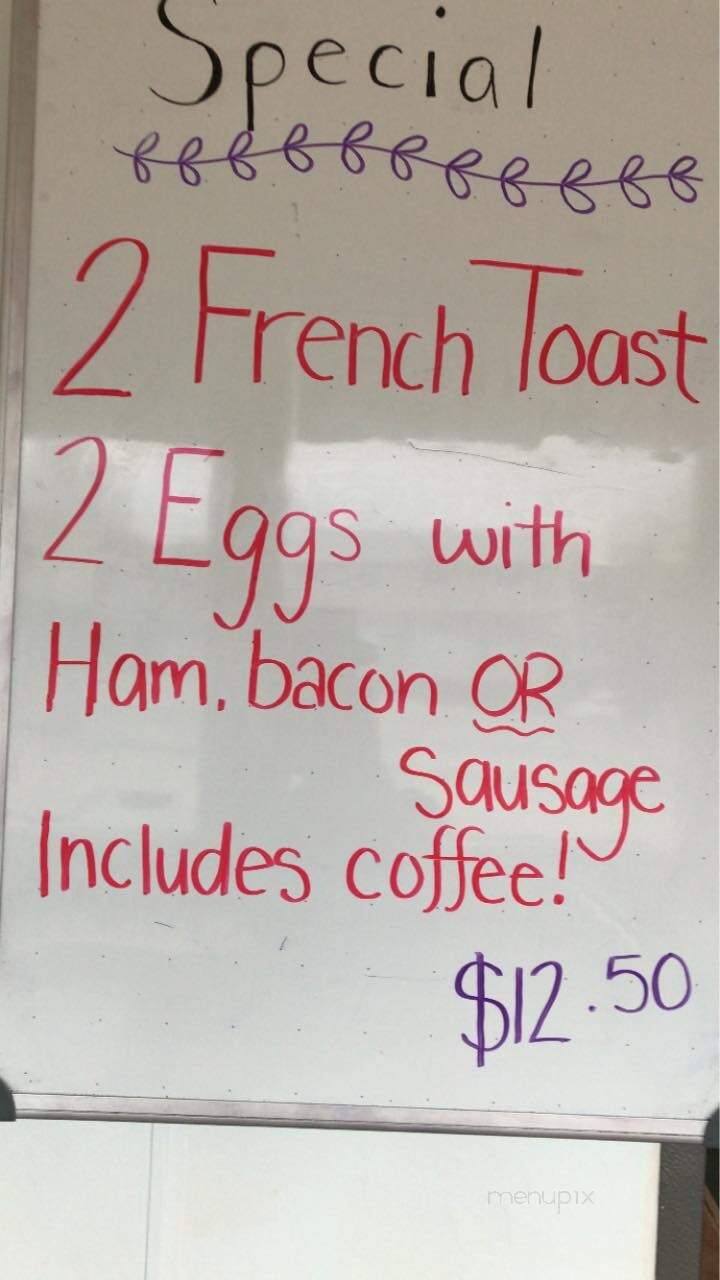 Special
2 French Toast
2 Eggs with
Ham, bacon OR
Sausage
Includes coffee!
$12.50
menupix